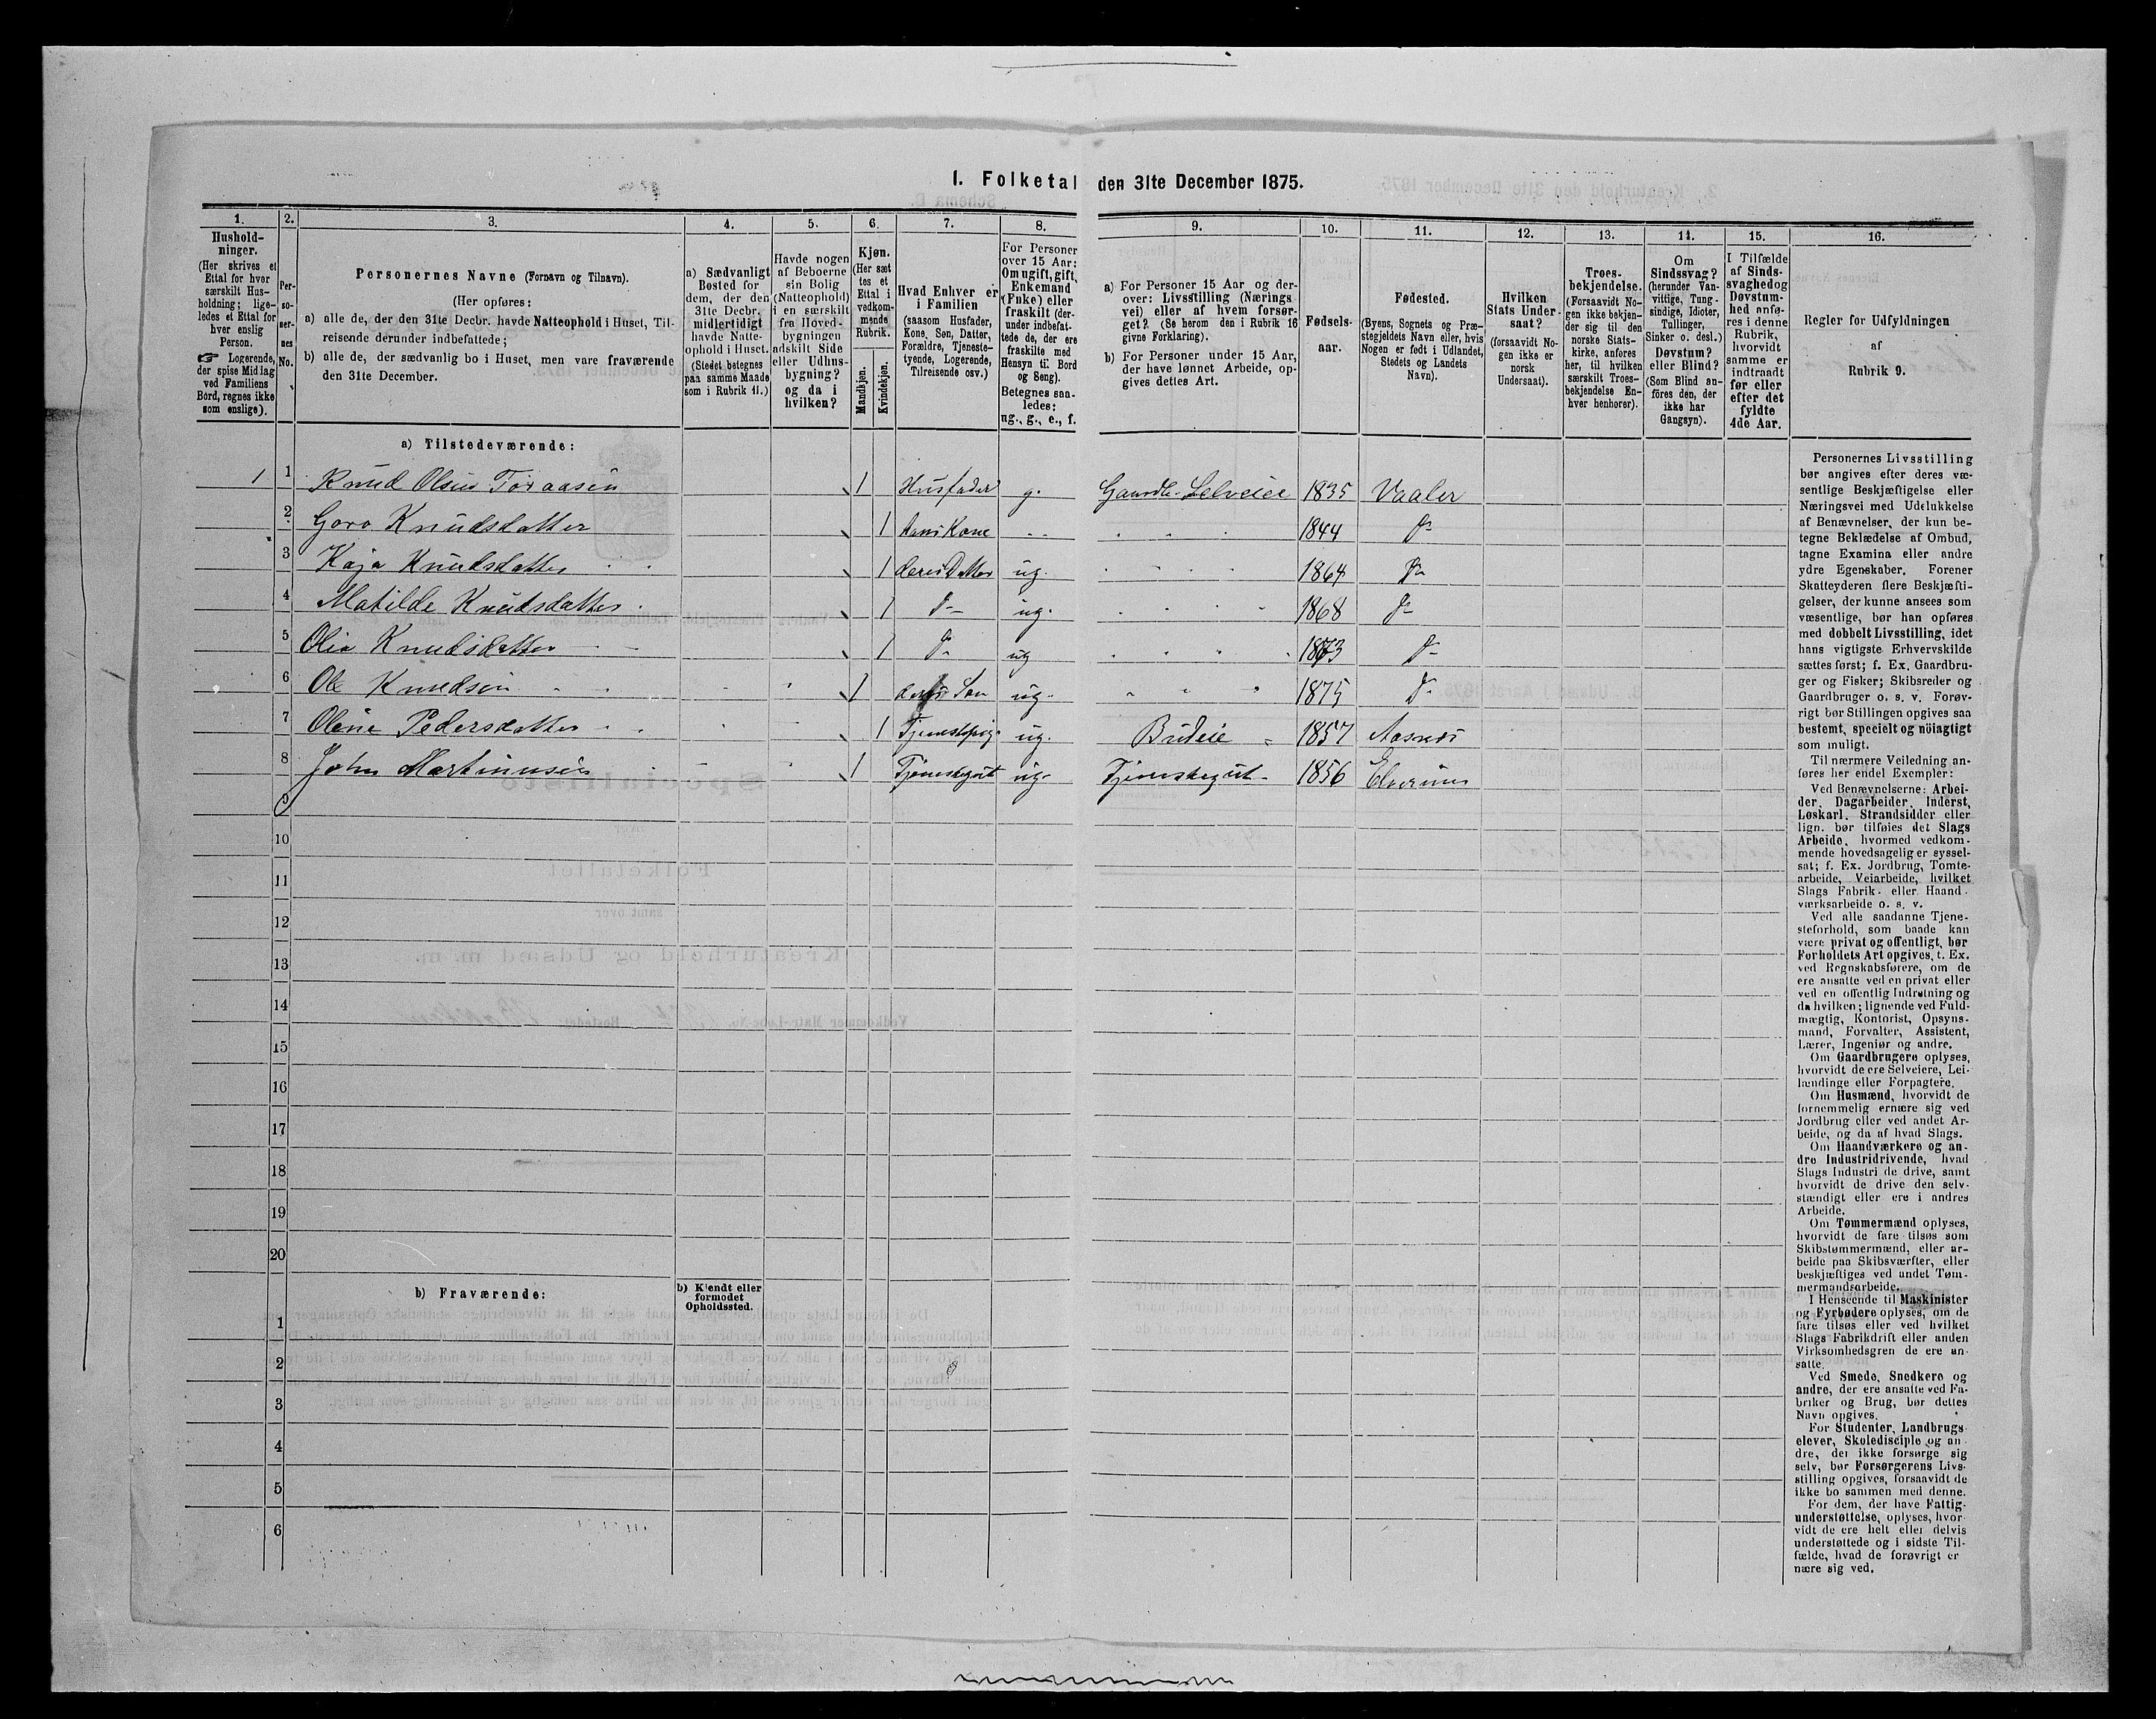 I. Folketal den 31te December 1875.
1. 2. 3. 4. 5. 6. 7. 8. 9. 10. 11. 12. 13. 14. 15. 16.
Hushold-
ninger.
(Her skrives et
Ettal for hver
særskilt Hus-
holdning; lige-
ledes et Ettal for
hver enslig
Person.
☞ Logerende,
der spise Middag
ved Familiens
Bord, regnes ikke
som enslige).
Per-
so-
ner-
nes
No.
Personernes Navne (Fornavn og Tilnavn).
(Her opføres:
a) alle de, der den 31te Decbr. havde Natteophold i Huset, Til-
reisende derunder indbefattede;
b) alle de, der sædvanlig bo i Huset, men vare fraværende
den 31te December.
a) Sædvanligt
Bosted for
dem, der den
31te Decbr.
midlertidigt
havde Natte-
ophold i Huset.
(Stedet betegnes
paa samme Maade
som i Rubrik 11.)
Havde nogen
af Beboerne
sin Bolig
(Natteophold)
i en særskilt
fra Hoved-
bygningen
adskilt Side
eller Udhus-
bygning?
og da i
hvilken?
Kjøn.
(Her sæt
tes et
Ettal i
vedkom-
mende
Rubrik.
Mandkjøn.
Kvindekjøn.
Hvad Enhver er
i Familien
(saasom Husfader,
Kone, Søn, Datter,
Forældre, Tjeneste-
tyende, Logerende,
Tilreisende osv.)
For Personer
over 15 Aar:
Om ugift, gift,
Enkemand
(Enke) eller
fraskilt (der-
under indbefat-
tede de, der ere
fraskilte med
Hensyn til Bord
og Seng).
Betegnes saa-
ledes:
ug., g., e., f.
a) For Personer 15 Aar og der-
over: Livsstilling (Nærings
vei) eller af hvem forsør-
get? (Se herom den i Rubrik 16
givne Forklaring).
b) For Personer under 15 Aar,
der have lønnet Arbeide, op-
gives dettes Art.
Fødsels-
aar.
Fødested.
(Byens, Sognets og Præ-
stegjeldets Navn eller, hvis
Nogen er født i Udlandet,
Stedets og Landets
Navn).
Hvilken
Stats Under-
saat?
(forsaavidt No-
gen ikke er
norsk
Undersaat).
Troes-
bekjendelse.
(Forsaavidt No-
gen ikke bekjen-
der sig til den
norske Stats-
kirke, anføres
her, til hvilken
særskilt Troes-
bekjendelse En-
hver henhører).
Om
Sindssvag?
(herunder Van-
vittige, Tung-
sindige, Idioter,
Tullinger,
Sinker o. desl.)
Døvstum?
eller Blind?
(Som Blind an-
føres den, der
ikke har
Gangsyn).
I Tilfælde
af Sinds-
svaghed og
Døvstum-
hed anfø-
res i denne
Rubrik,
hvorvidt
samme er
indtraadt
før eller
efter det
fyldte
4de Aar.
Regler for Udfyldningen
af
Rubrik 9.
a) Tilstedeværende:
1 1 Knud Olsen Toraasen 1 Husfader g. Gaardb. Selveier 1835 Vaaler
2 Goro Knudsdatter 1 hans Kone 1844 Do
3 Kaja Knudsdatter 1 deres Datter ug. 1864 Do
4 Matilde Knudsdatter 1 Do ug. 1868 Do
5 Olia Knudsdatter 1 Do ug 1873 Do
6 Ole Knudsen 1 deres Søn ug. 1875 Do
7 Oline Pedersdatter 1 Tjenestepig ug. Budeie 1857 Aasnes
8 John Martinusen 1 Tjenestegut ug. Tjenestegut 1856 Elverum
9
10
11
12
13
14
15
16
17
18
19
20
b) Fraværende:
b) Kjendt eller
formodet
Opholdssted.
1
2
3
4
5
6
Personernes Livsstilling
bør angives efter deres væ-
sentlige Beskjæftigelse eller
Næringsvei med Udelukkelse
af Benævnelser, der kun be-
tegne Beklædelse af Ombud,
tagne Examina eller andre
ydre Egenskaber. Forener
Skatteyderen flere Beskjæfti-
gelser, der kunne ansees som
væsentlige, bør han opføres
med dobbelt Livsstilling, idet
hans vigtigste Erhvervskilde
sættes først; f. Ex. Gaardbru-
ger og Fisker; Skibsreder og
Gaardbruger o. s. v. Forøv-
rigt bør Stillingen opgives saa
bestemt, specielt og nöiagtigt
som muligt.
Til nærmere Veiledning an-
føres her endel Exempler:
Ved Benævnelserne: Arbei-
der, Dagarbeider, Inderst,
Løskarl, Strandsidder eller
lign. bør tilføies det Slags
Arbeide, hvormed vedkom-
mende hovedsagelig er syssel-
sat; f. Ex. Jordbrug, Tomte-
arbeide, Veiarbeide, hvilket
Slags Fabrik- eller Haand-
værksarbeide o. s. v.
Ved alle saadanne Tjene-
steforhold, som baade kan
være privat og offentligt, bør
Forholdets Art opgives, t. Ex.
ved Regnskabsførere, om de
ere ansatte ved en privat eller
ved en offentlig Indretning og
da hvilken; lignende ved Fuld-
mægtig, Kontorist, Opsyns-
mand, Forvalter, Assistent,
Lærer, Ingeniør og andre.
Om Gaardbrugere oplyses,
hvorvidt de ere Selveiere, Lei-
lændinge eller Forpagtere.
Om Husmænd, hvorvidt de
fornemmelig ernære sig ved
Jordbrug eller ved andet Ar-
beide, og da af hvad Slags.
Om Haandværkere og an-
dre Industridrivende, hvad
Slags Industri de drive, samt
hvorvidt de drive den selv-
stændigt eller ere i andres
Arbeide.
Om Tømmermænd oplyses,
hvorvidt de fare tilsøs som
Skibstømmermænd, eller ar-
beide paa Skibsværfter, eller
beskjæftiges ved andet Tøm-
mermandsarbeide.
I Henseende til Maskinister
og Fyrbødere oplyses, om de
fare tilsøs eller ved hvilket
Slags Fabrikdrift eller anden
Virksomhedsgren de ere an-
satte.
Ved Smede, Snedkere og
andre, der ere ansatte ved Fa-
briker og Brug, bør dettes
Navn opgives.
For Studenter, Landbrugs-
elever, Skoledisciple og an-
dre, der ikke forsørge sig
selv, bør Forsørgerens Livs-
stilling opgives, forsaavidt de
ikke bo sammen med denne.
For dem, der have Fattig-
understøttelse, oplyses, hvor-
vidt de ere helt eller delvis
understøttede og i sidste Til-
fælde, hvad de forøvrigt er
nære sig ved.